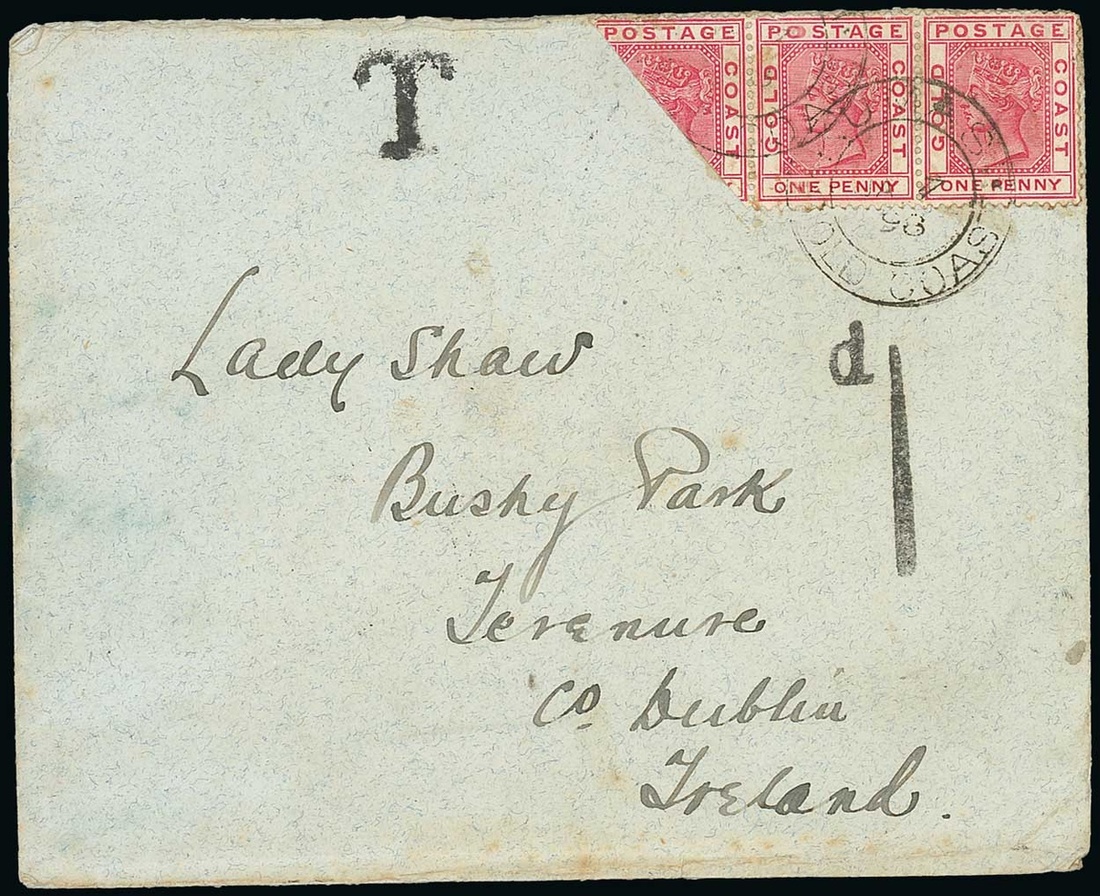 T
POSTAGE COAST
POSTAGE GOLD COAST ONE PENNY
POSTAGE GOLD COAST ONE PENNY
98
GOLD COAST
d
1
Lady Shaw
Bushy Park
Terenure
Co Dublin
Ireland.